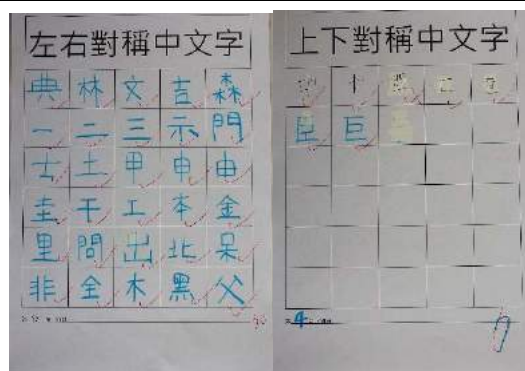 左右對稱中文字
典 林 文 吉 森
一 二 三 示 門
士 土 甲 申 由
圭 干 工 本 金
里 問 出 北 呆
非 全 木 黑 父
上下對稱中文字
十
臣 巨
4